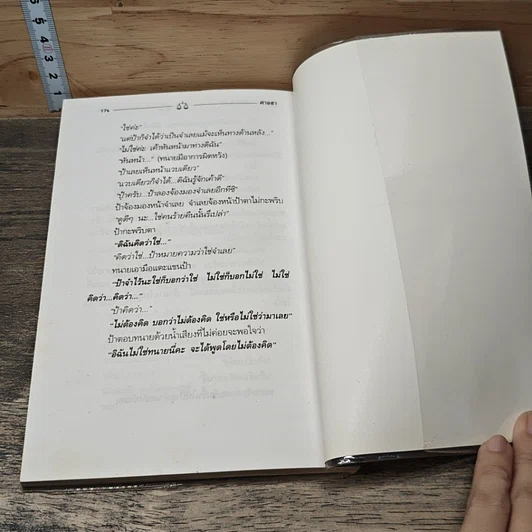 5
5
4
3
2
1
174
ศาลฮา
"ใช่ค่ะ"
"แต่ป้าก็จำได้ว่าเป็นจำเลยแม้จะเห็นทางด้านหลัง..."
"ไม่ใช่ค่ะ เค้าหันหน้ามาทางดิฉัน"
"หันหน้า..." (ทนายมีอาการผิดหวัง)
"ป้าเลยเห็นหน้าแวบเดียว"
"แวบเดียวก็จำได้...ดิฉันรู้จักเค้าดี"
"ป้าครับ...ป้าลองจ้องมองจำเลยอีกทีซิ"
ป้าจ้องมองหน้าจำเลย จำเลยจ้องหน้าป้าตาไม่กะพริบ
"ดูดีๆ นะ...ใช่คนร้ายคืนนั้นรึเปล่า"
ป้ากะพริบตา
"ดิฉันคิดว่าใช่..."
"คิดว่าใช่...ป้าหมายความว่าใช่จำเลย"
ทนายเอามือแตะแขนป้า
"ป้าจำไว้นะใช่ก็บอกว่าใช่ ไม่ใช่ก็บอกไม่ใช่ ไม่ใช่
คิดว่า...คิดว่า..."
"ป้าคิดว่า..."
"ไม่ต้องคิด บอกว่าไม่ต้องคิด ใช่หรือไม่ใช่ว่ามาเลย"
ป้าตอบทนายด้วยน้ำเสียงที่ไม่ค่อยจะพอใจว่า
"อิฉันไม่ใช่ทนายนี่คะ จะได้พูดโดยไม่ต้องคิด"